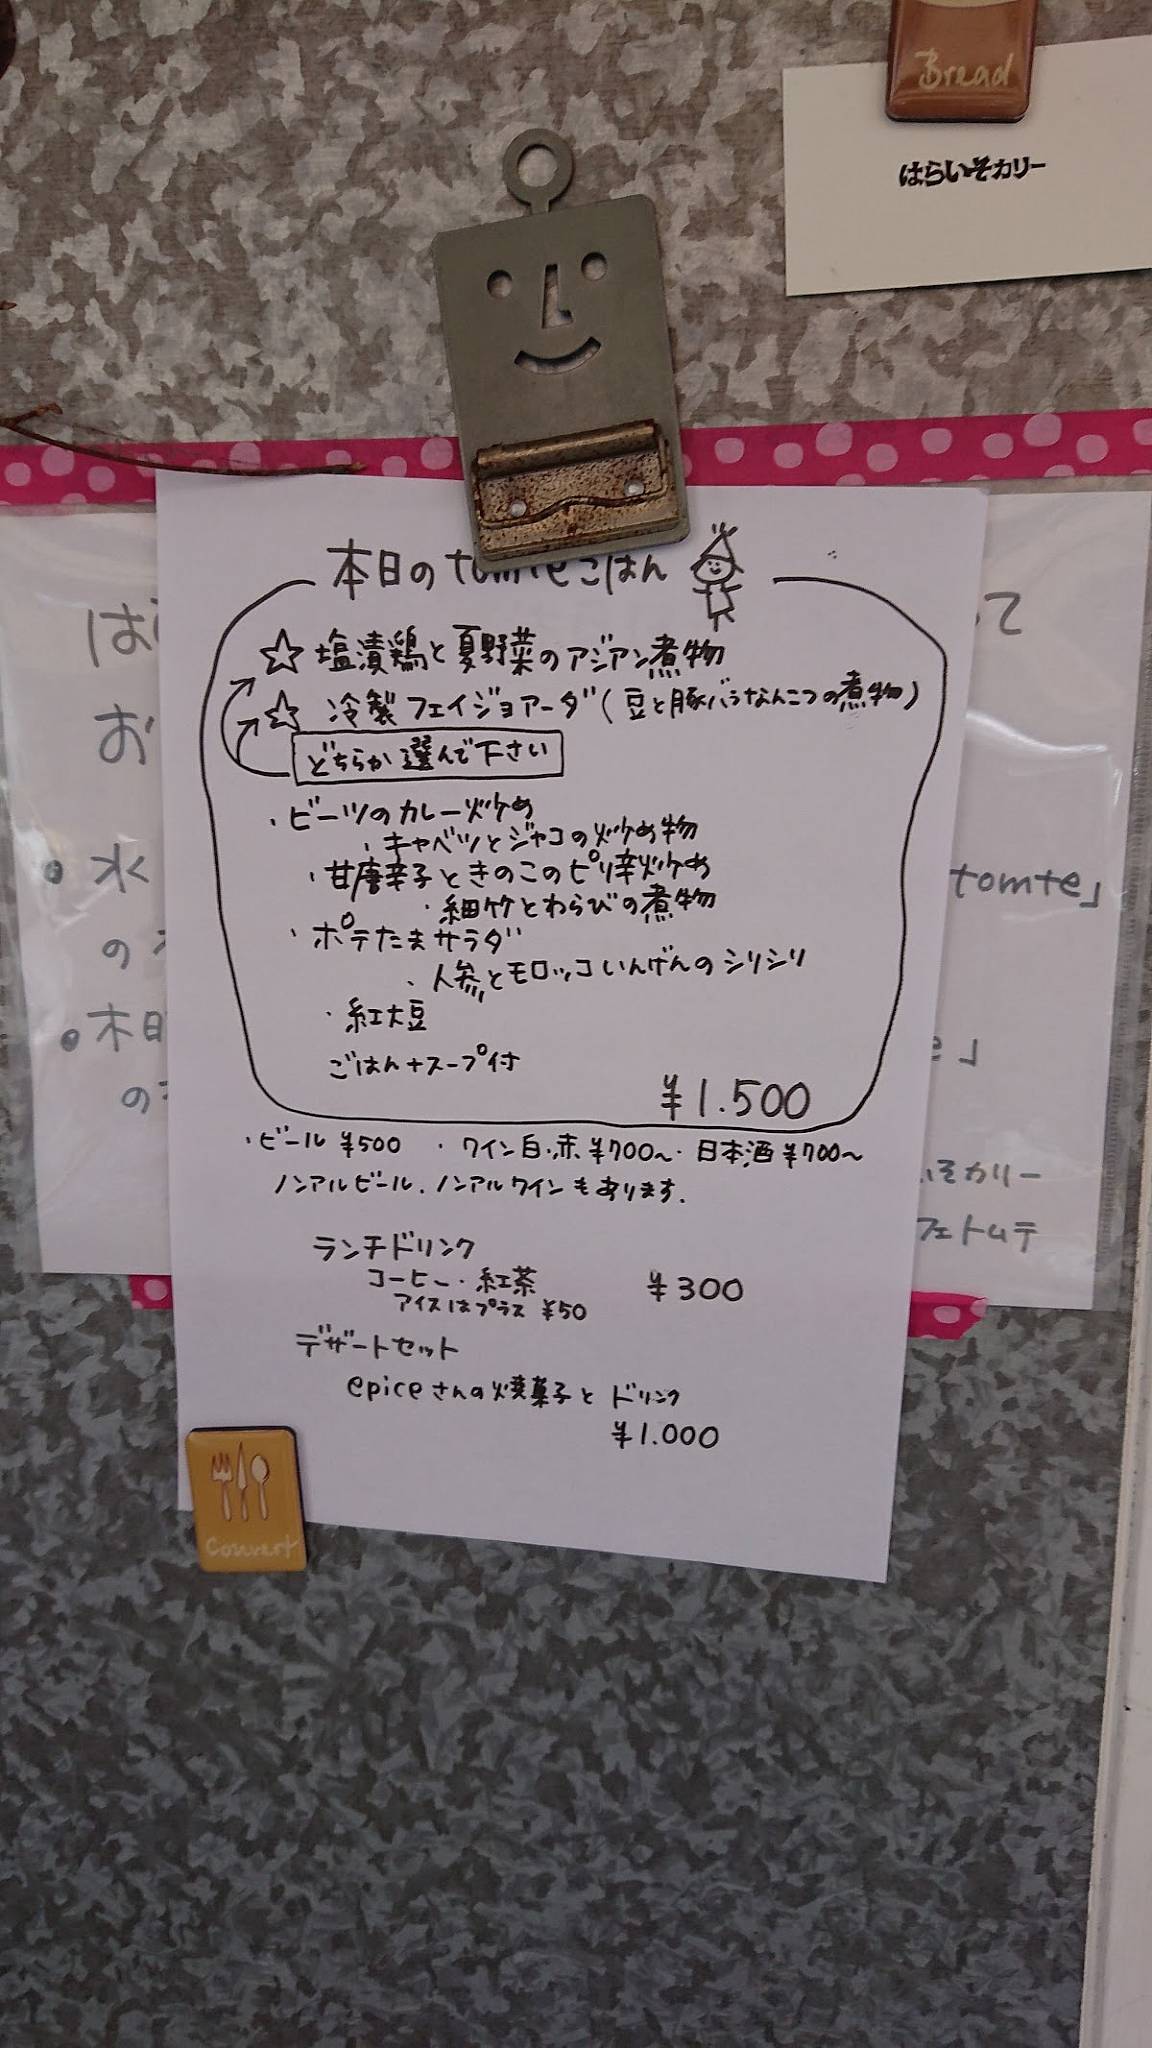 Bread
はらいそカリー
本日のtomteごはん
☆ 塩漬鶏と夏野菜のアジアン煮物
☆ 冷製フェイジョアーダ(豆と豚バラなんこつの煮物)
どちらか選んで下さい
・ビーツのカレー炒め
・キャベツとジャコの炒め物
・甘唐辛子ときのこのピリ辛炒め
・細竹とわらびの煮物
・ポテたまサラダ
・人参とモロッコいんげんのシリシリ
・紅大豆
ごはん+スープ付
¥1.500
・ビール ¥500 ・ワイン白・赤 ¥700〜・日本酒 ¥700〜
ノンアルビール、ノンアルワインもあります。
ランチドリンク
コーヒー・紅茶 ¥300
アイスはプラス ¥50
デザートセット
epiceさんの焼菓子とドリンク
¥1.000
couvert
は
て
お
・水
tomte」
の
・木曜
」
の
いそカリー
フェトムテ